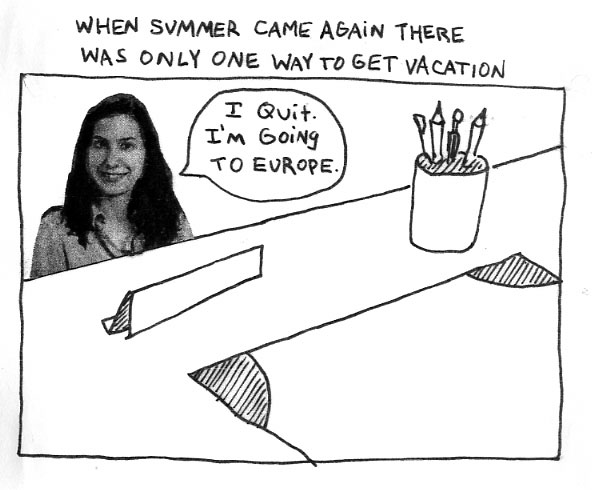 WHEN SUMMER CAME AGAIN THERE
WAS ONLY ONE WAY TO GET VACATION
I QUIT.
I'M GOING
TO EUROPE.